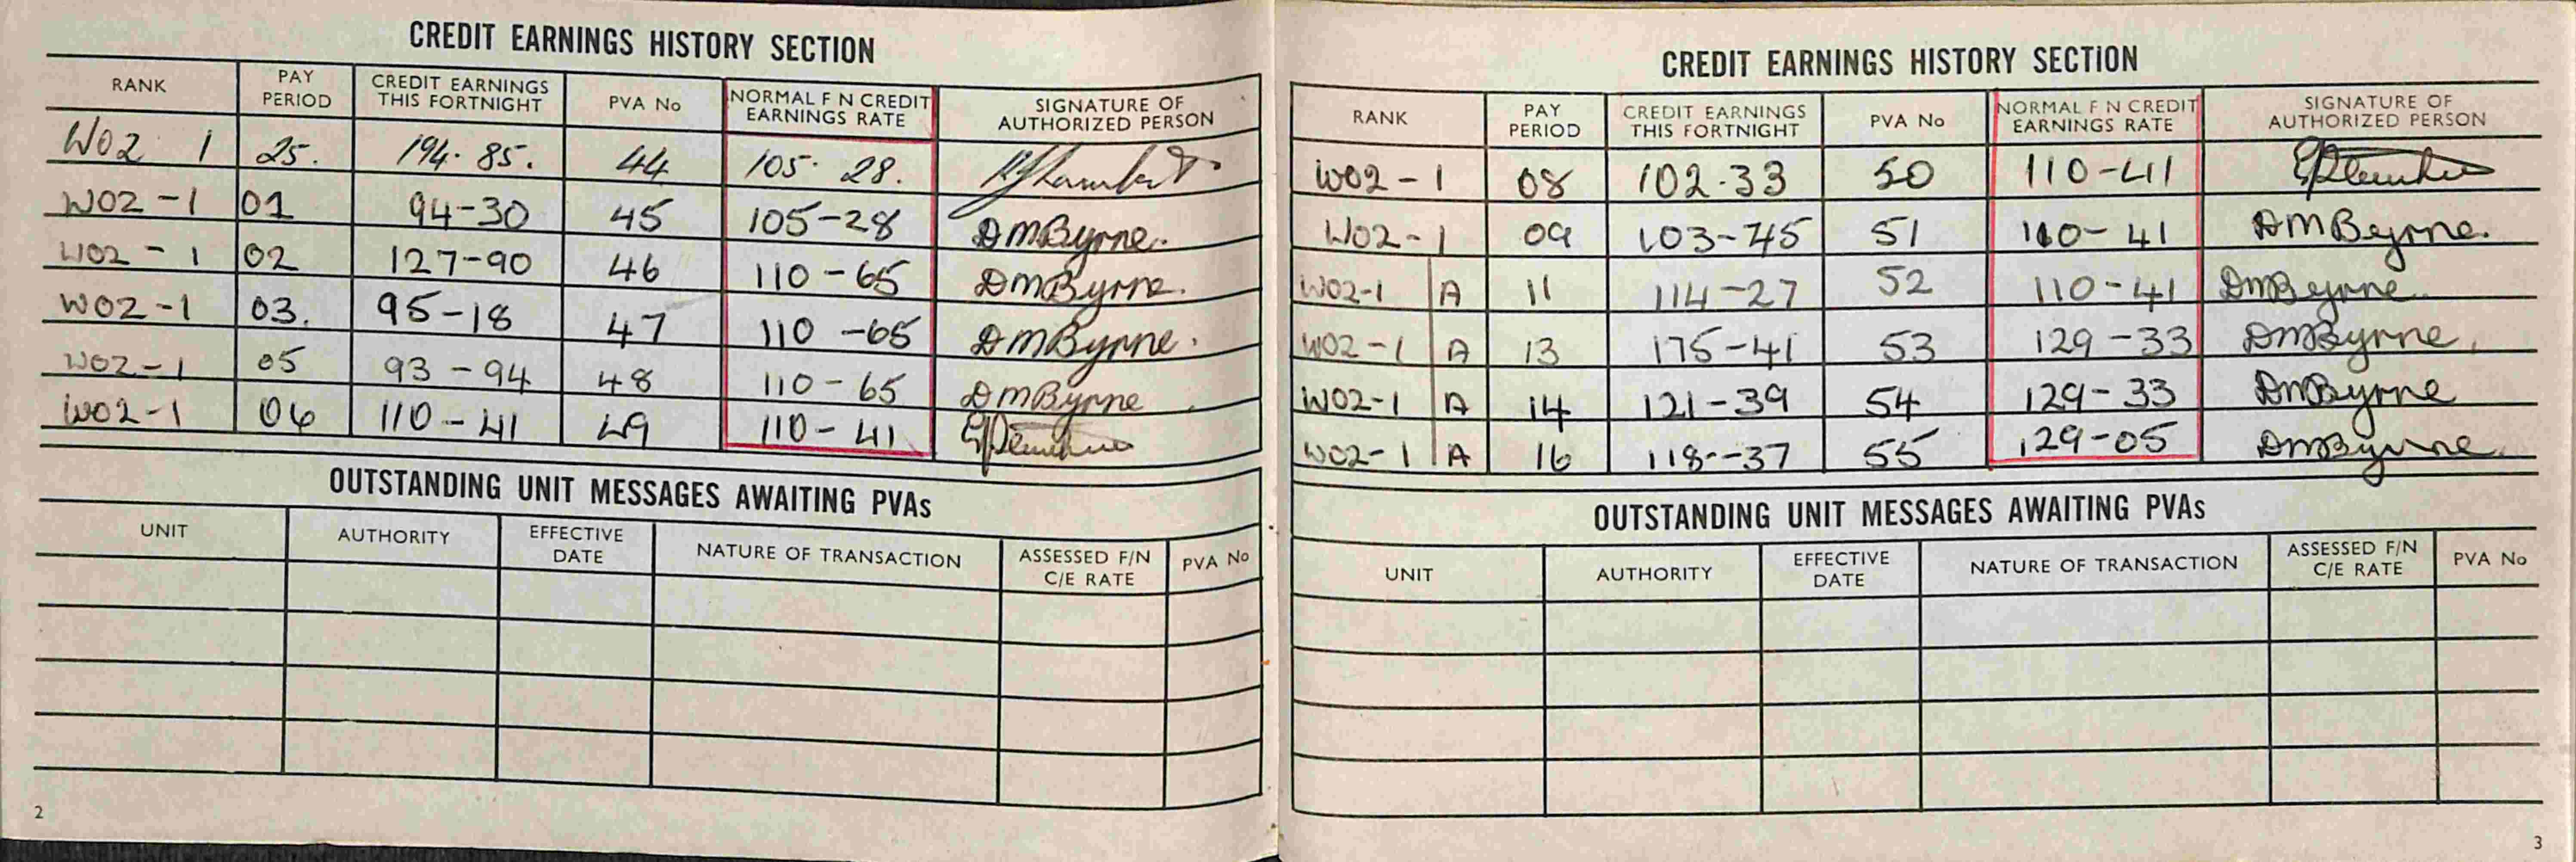 CREDIT EARNINGS HISTORY SECTION
RANK PAY PERIOD CREDIT EARNINGS THIS FORTNIGHT PVA No NORMAL F N CREDIT EARNINGS RATE SIGNATURE OF AUTHORIZED PERSON
WO2 1 25. 194. 85. 44 105. 28.
WO2-1 01 94-30 45 105-28 DMByrne.
WO2-1 02 127-90 46 110-65 DMByrne.
WO2-1 03. 95-18 47 110-65 DMByrne.
WO2-1 05 93-94 48 110-65 DMByrne
WO2-1 06 110-41 49 110-41
OUTSTANDING UNIT MESSAGES AWAITING PVAs
UNIT AUTHORITY EFFECTIVE DATE NATURE OF TRANSACTION ASSESSED F/N C/E RATE PVA No
2
CREDIT EARNINGS HISTORY SECTION
RANK PAY PERIOD CREDIT EARNINGS THIS FORTNIGHT PVA No NORMAL F N CREDIT EARNINGS RATE SIGNATURE OF AUTHORIZED PERSON
WO2-1 08 102.33 50 110-41
WO2-1 09 103-45 51 110-41 DMByrne.
WO2-1 A 11 114-27 52 110-41 DMByrne.
WO2-1 A 13 175-41 53 129-33 DMByrne.
WO2-1 A 14 121-39 54 129-33 DMByrne
WO2-1 A 16 118--37 55 129-05 DMByrne.
OUTSTANDING UNIT MESSAGES AWAITING PVAs
UNIT AUTHORITY EFFECTIVE DATE NATURE OF TRANSACTION ASSESSED F/N C/E RATE PVA No
3